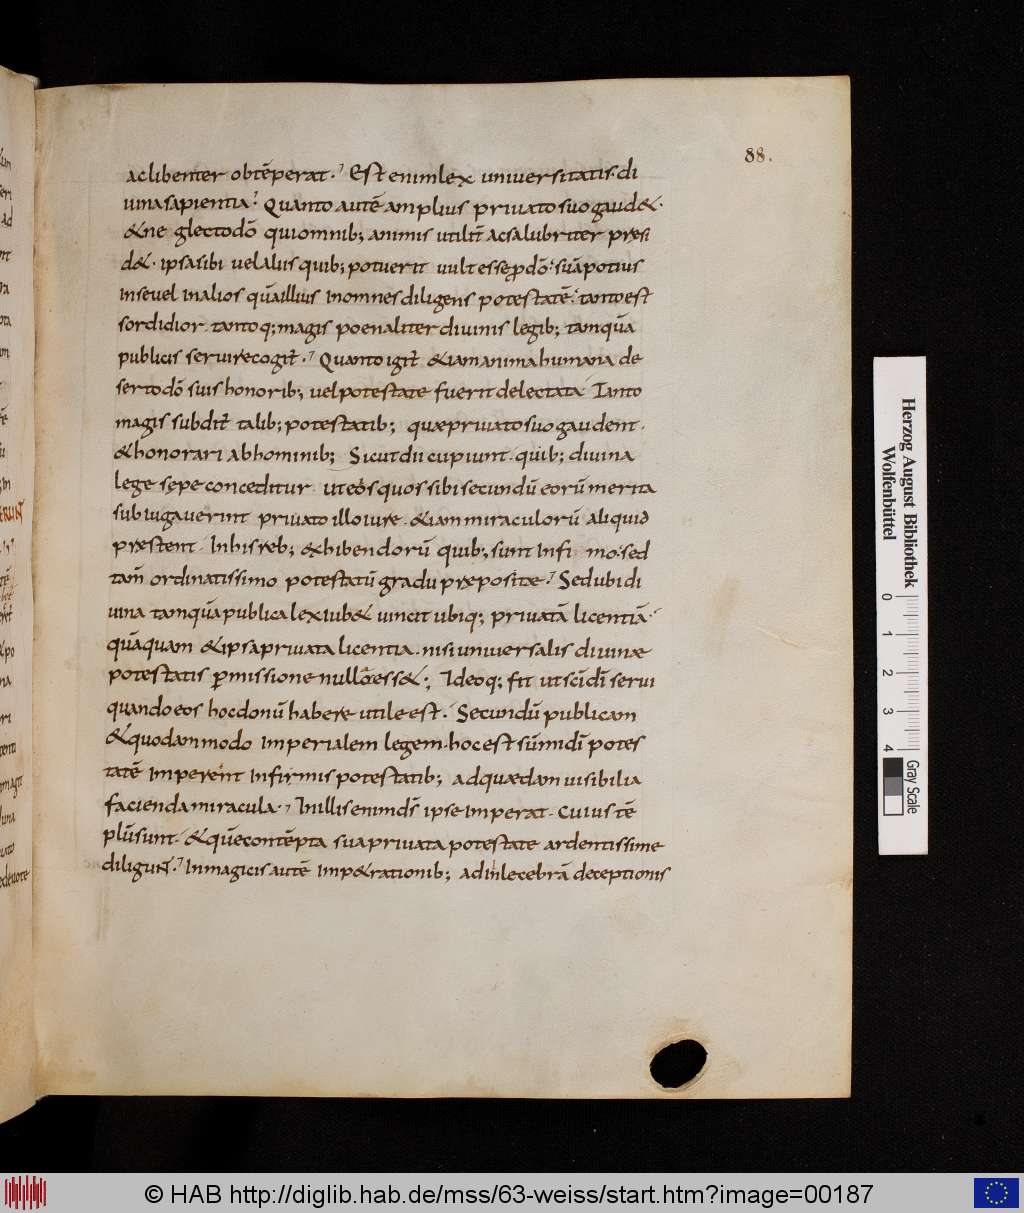 88.
ac libenter obtēperat. Est enim lex uniuersitatis. di
uina sapientia. Quanto autē amplius priuato suo gaud&.
& ne glecto dō qui omnib; animis utilit̄ ac salubriter presi
d&. ipsa sibi uel aliis quib; potuerit uult esse p dō. suā potius
in se uel in alios quā illius in omnes diligens potestatē. tanto est
sordidior. tanto q; magis poenaliter diuinis legib; tamquā
publicis seruire cogit̄. Quanto igit̄ & iam anima humana de
serto dō suis honorib; uel potestate fuerit delectata Tanto
magis subdit̄ talib; potestatib; quae priuato suo gaudent.
& honorari ab hominib; Sicut dii cupiunt. quib; diuina
lege sepe conceditur ut eos quos sibi secundū eorū merita
subiugauerint priuato illo iure. & iam miraculorū aliquid
prestent. In his reb; & hibendorū quib; sunt infi mo. sed
tam̄ ordinatissimo potestatū gradu prepositae. Sed ubi di
uina tamquā publica lex iub& uincit ubiq; priuatā licentiā.
quāquam & ipsa priuata licentia. nisi uniuersalis diuinae
potestatis pmissione nulla ess&.; Ideoq; fit ut sc̄i dī serui
quando eos hoc donū habere utile est. Secundū publicam
& quodammodo imperialem legem. hoc est sūmi dī potes
tatē imperent infirmis potestatib; ad quaedam uisibilia
facienda miracula. In illis enim ds̄ ipse imperat. cuius tē
plū sunt. & quē contēpta sua priuata potestate ardentissime
diligunt. In magicis autē imp&rationib; ad inlecebrā deceptionis
Herzog August Bibliothek
Wolfenbüttel
0
1
2
3
4
Gray Scale
© HAB http://diglib.hab.de/mss/63-weiss/start.htm?image=00187